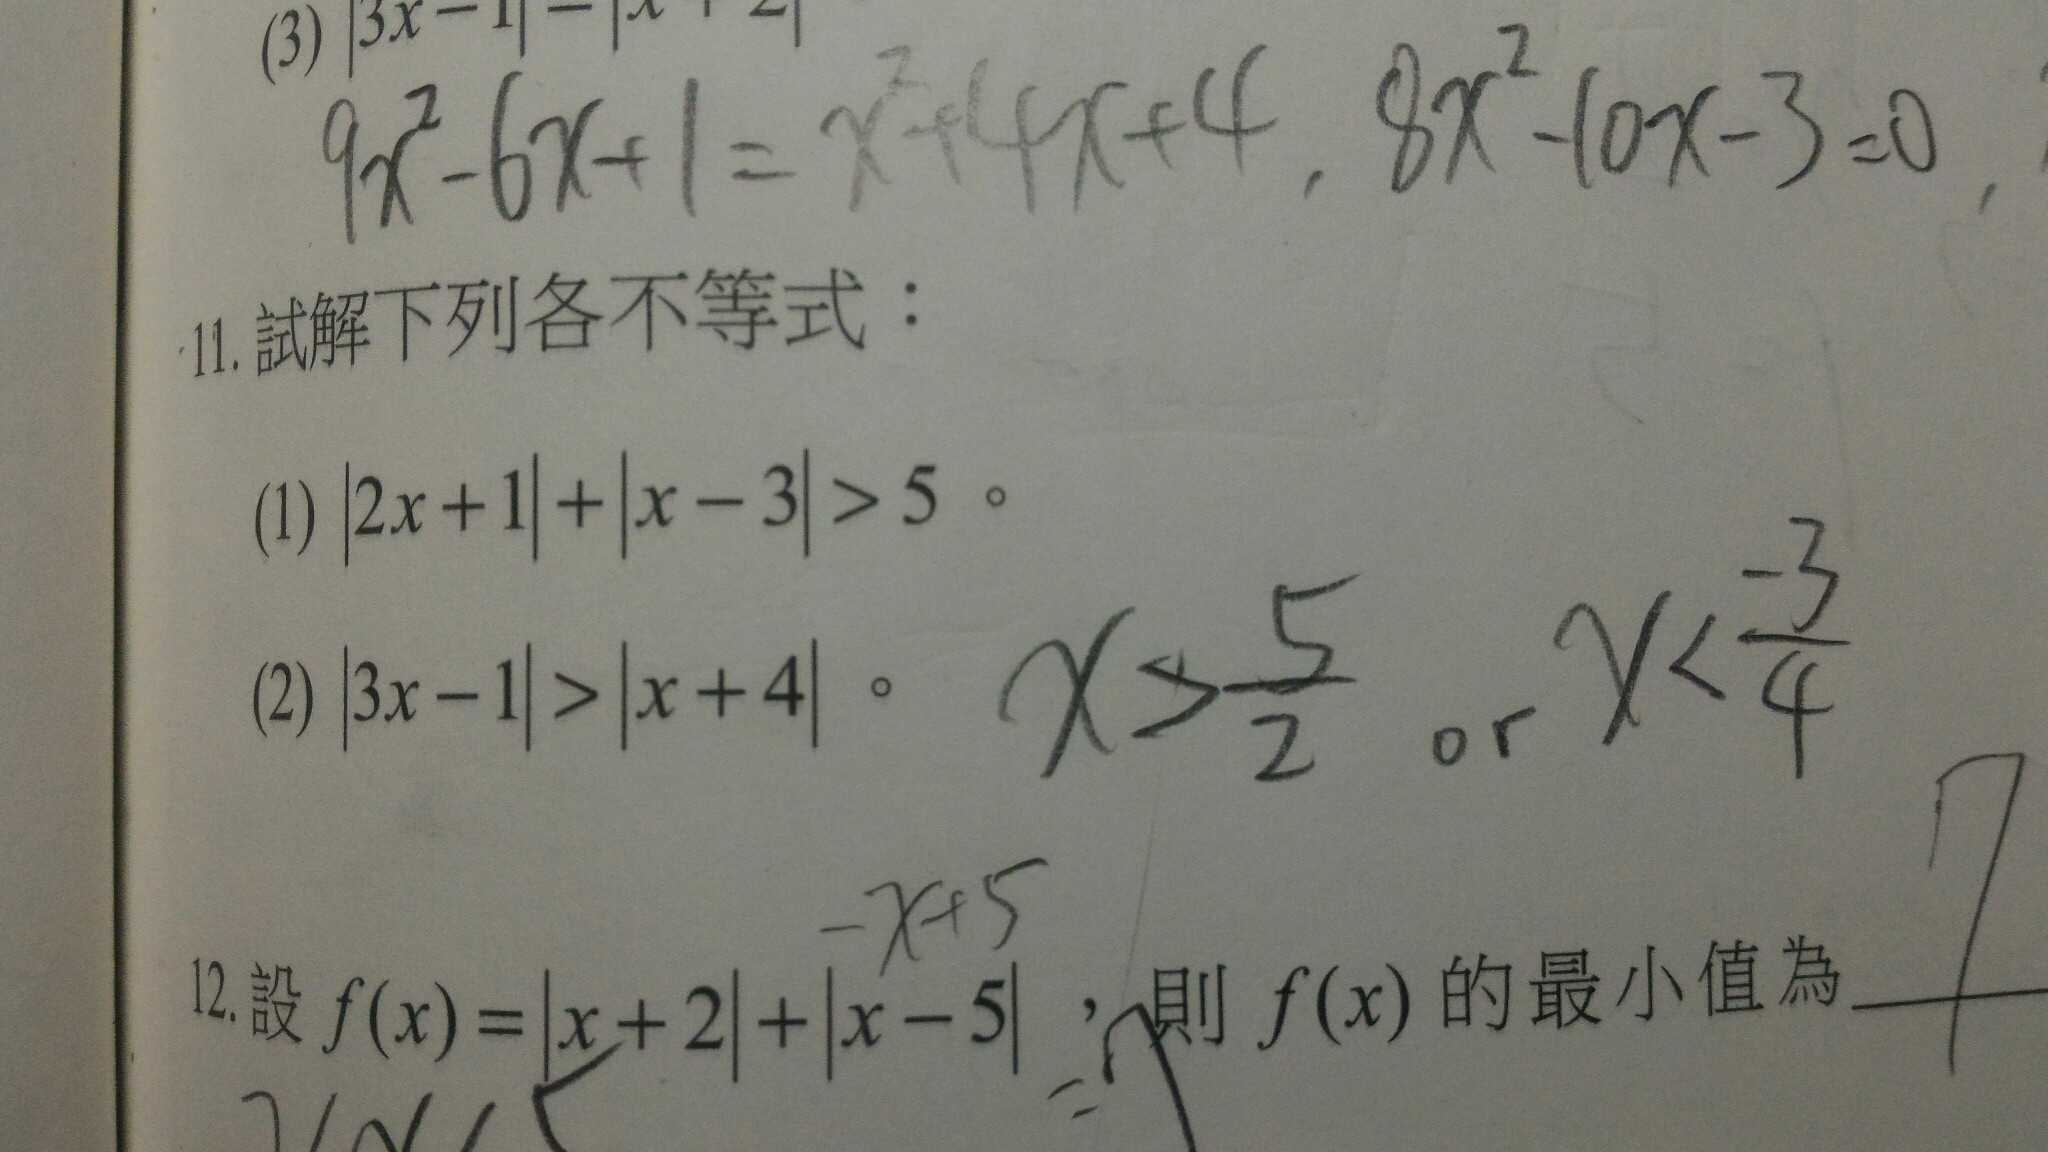 (3) |3x−1|−|x+2|
9x²-6x+1=x²+4x+4, 8x²-10x-3=0,
11. 試解下列各不等式：
(1) |2x+1|+|x−3|>5。
(2) |3x−1|>|x+4|。 x>5/2 or x<-3/4
-x+5
12. 設 f(x)=|x+2|+|x−5|，則 f(x) 的最小值為 7
=7